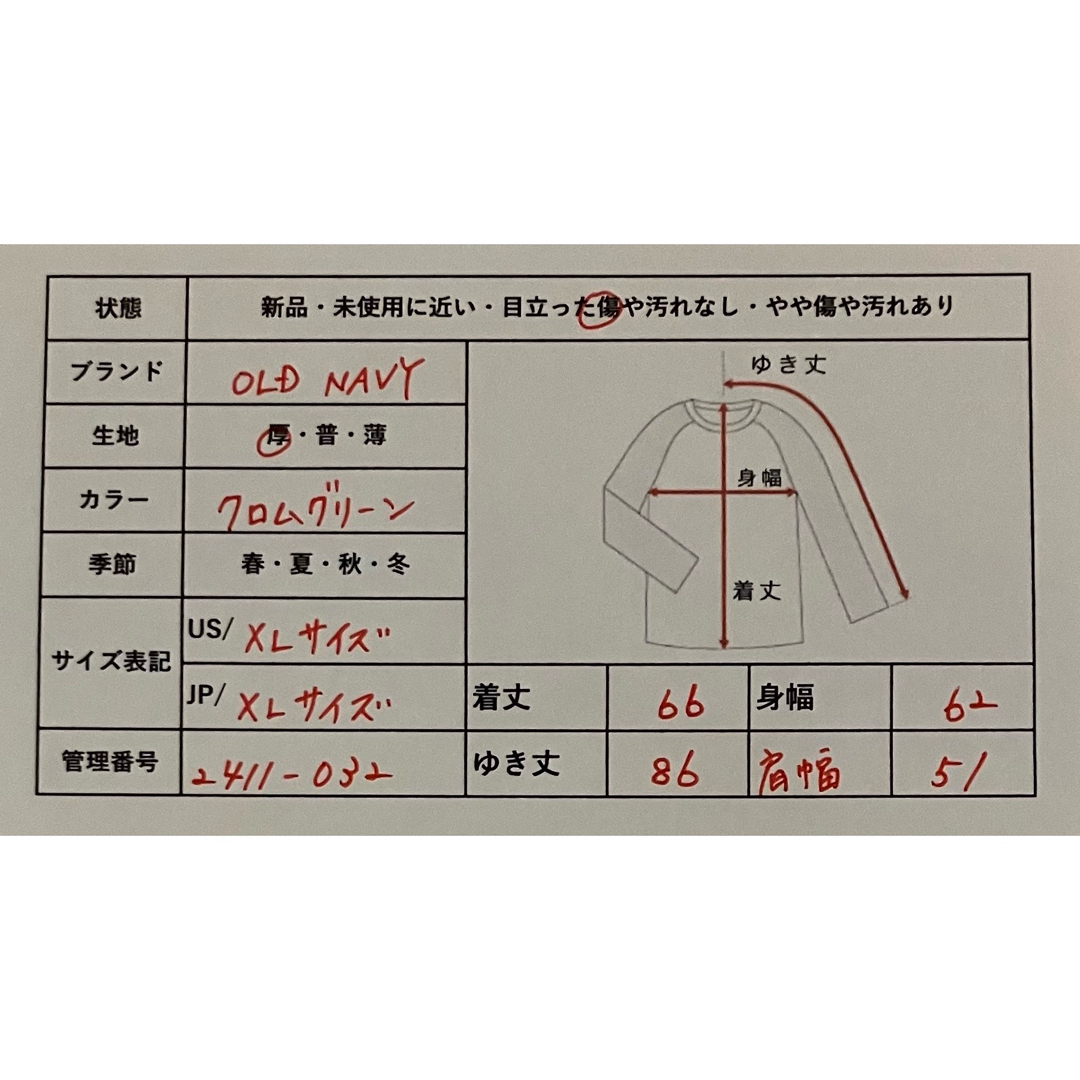 状態 新品・未使用に近い・目立った傷や汚れなし・やや傷や汚れあり
ブランド OLD NAVY
生地 厚・普・薄
カラー クロムグリーン
季節 春・夏・秋・冬
サイズ表記
US/ XLサイズ
JP/ XLサイズ
管理番号 2411-032
ゆき丈
身幅
着丈
着丈 66 身幅 62
ゆき丈 86 肩幅 51